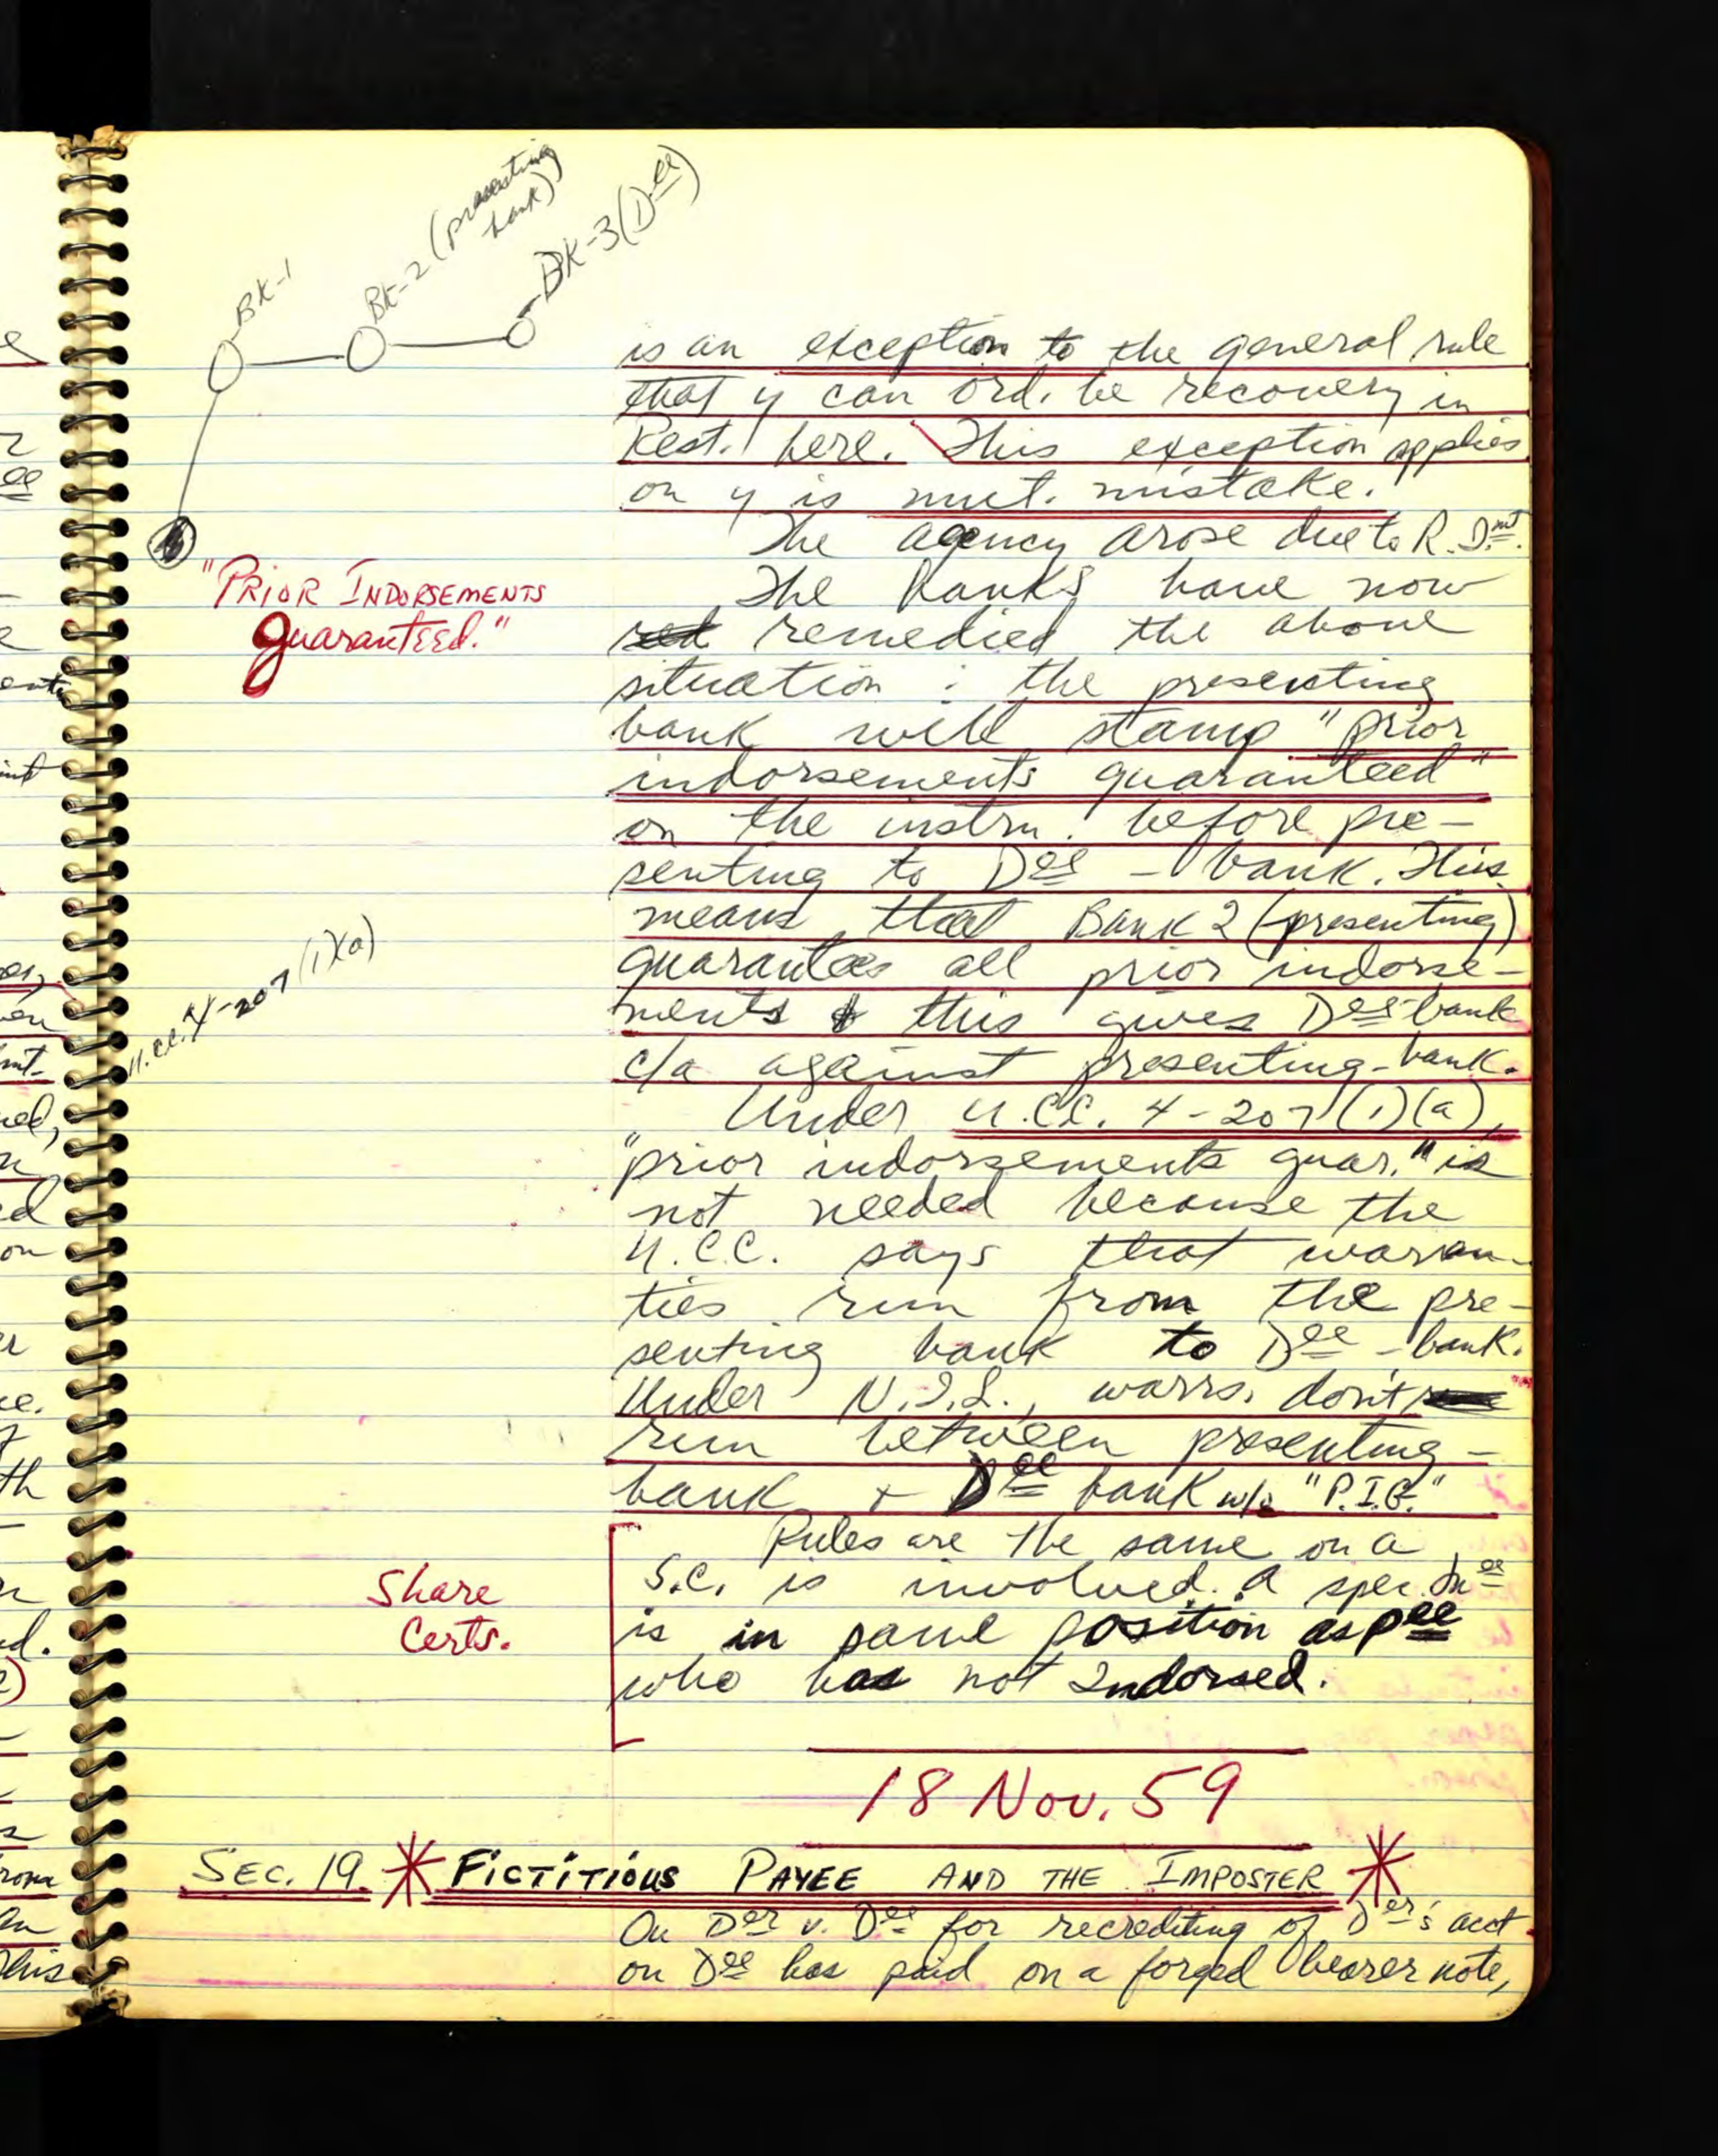 BK-1
BK-2 (presenting
bank)
BK-3 (Dee)
is an exception to the general rule
that y can ord. be recovery in
Rest. here. This exception applies
on y is mut. mistake.
The agency arose due to R. Dmt.
"PRIOR INDORSEMENTS
Guaranteed."
The banks have now
red remedied the above
situation : the presenting
bank will stamp "prior
indorsements guaranteed"
on the instru. before pre-
senting to Dee - bank. This
means that Bank 2 (presenting)
guarantees all prior indorse-
ments & this gives Dee-bank
c/a against presenting-bank.
U.CC. 4-207 (1)(a)
Under U.CC. 4-207(1)(a),
"prior indorsements guar." is
not needed because the
U.C.C. says that warran-
ties run from the pre-
senting bank to Dee - bank.
Under N.I.L., warrs. don't
run between presenting-
bank + Dee bank w/o "P.I.G."
Share
Certs.
Rules are the same on a
S.C. is involved. A spec. Inee
is in same position as Pee
who has not Indorsed.
18 Nov. 59
SEC. 19. * FICTITIOUS PAYEE AND THE IMPOSTER *
On Der v. Dee for recrediting of Der's acct
on Dee has paid on a forged bearer note,